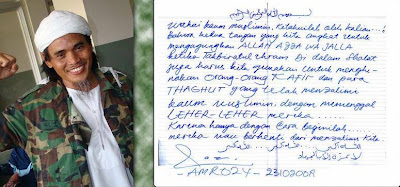 بسم الله الرحمن الرحيم
Wahai kaum muslimin, Ketahuilah oleh kalian...!
bahwa kedua tangan yang kita angkat untuk
mengagungkan ALLAH AZZA WA JALLA
ketika Takbiratul ikhram di dalam Shalat
juga harus kita gunakan untuk menghi-
nakan orang-orang KAFIR dan para
THAGHUT yang telah menzalimi
kaum muslimin. dengan memenggal
LEHER-LEHER mereka.....
Karena hanya dengan Cara beginilah...
mereka mau berhenti dari menzalimi kita
-AMROZY- 23102008